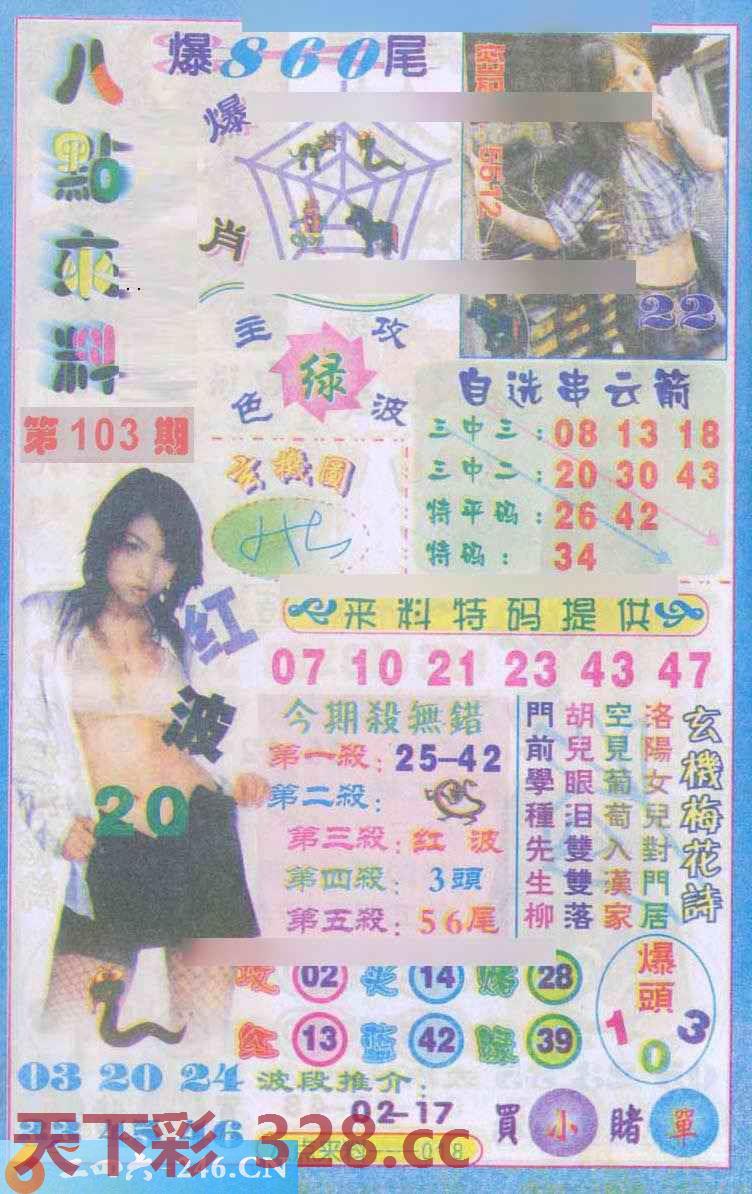 八點來料
第103期
爆860尾
爆肖
5512
22
主攻
绿
色波
自选串云箭
三中三：08 13 18
三中二：20 30 43
特平码：26 42
特码：34
玄機圖
来料特码提供
07 10 21 23 43 47
红波
20
今期殺無錯
第一殺：25-42
第二殺：
第三殺：红波
第四殺：3頭
第五殺：56尾
玄機梅花詩
洛陽女兒對門居
空見葡萄入漢家
胡兒眼泪雙雙落
門前學種先生柳
02 14 28
红 13 蓝 42 綠 39
爆頭
1 0 3
03 20 24
波段推介：
02-17
買小賭單
天下彩 328.cc
二四六 246.CN